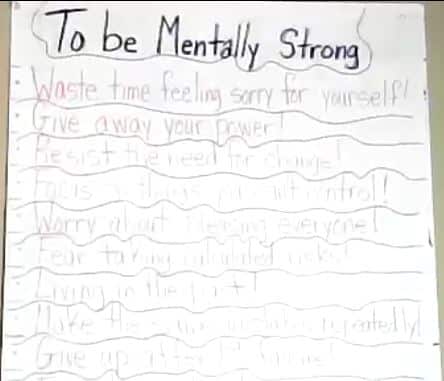 To be Mentally Strong
Waste time feeling sorry for yourself!
Give away your power!
Resist the need for change!
Focus things can't control!
Worry about pleasing everyone!
Fear taking calculated risks!
Living in the past!
Make the same mistakes repeatedly!
Give up after failure!